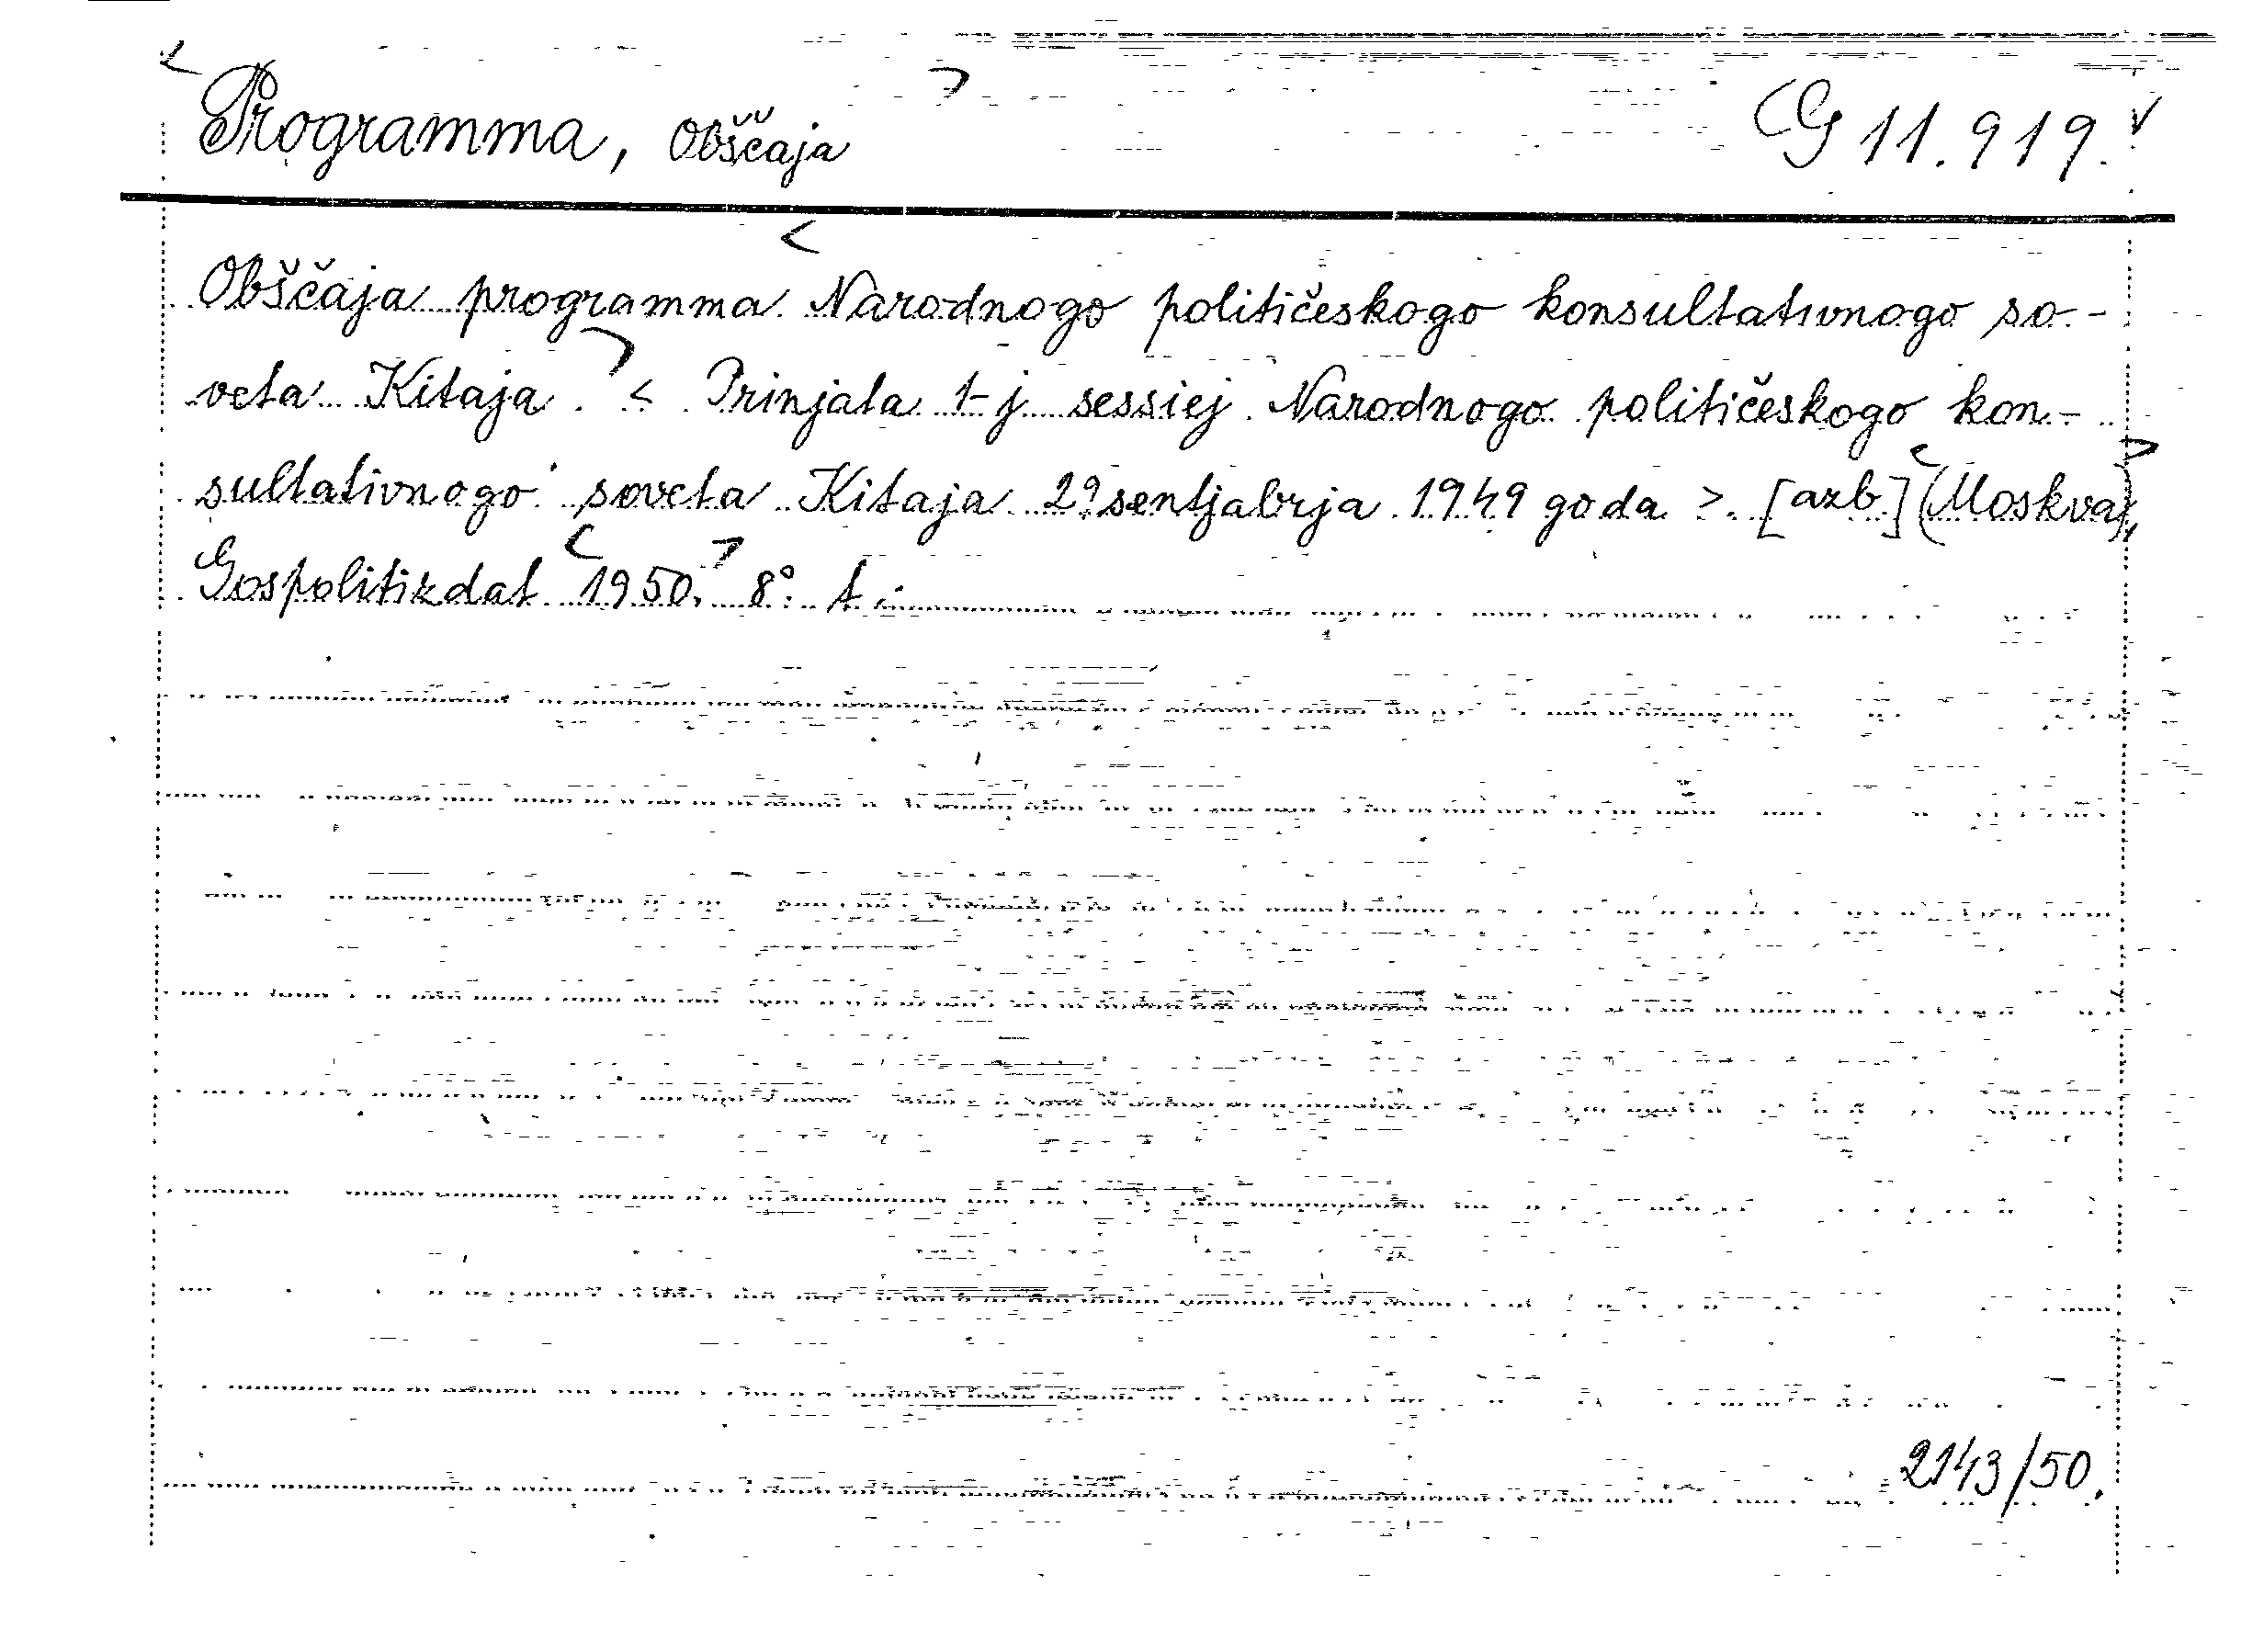 Programma, Obščaja
G 11.919.
Obščaja programma Narodnogo političeskogo konsultativnogo so-
veta Kitaja. < Prinjata 1-j sessiej Narodnogo političeskogo kon-
sultativnogo soveta Kitaja 29 sentjabrja 1949 goda >. [azb.] (Moskva),
Gospolitizdat 1950. 8° t.
2143/50.